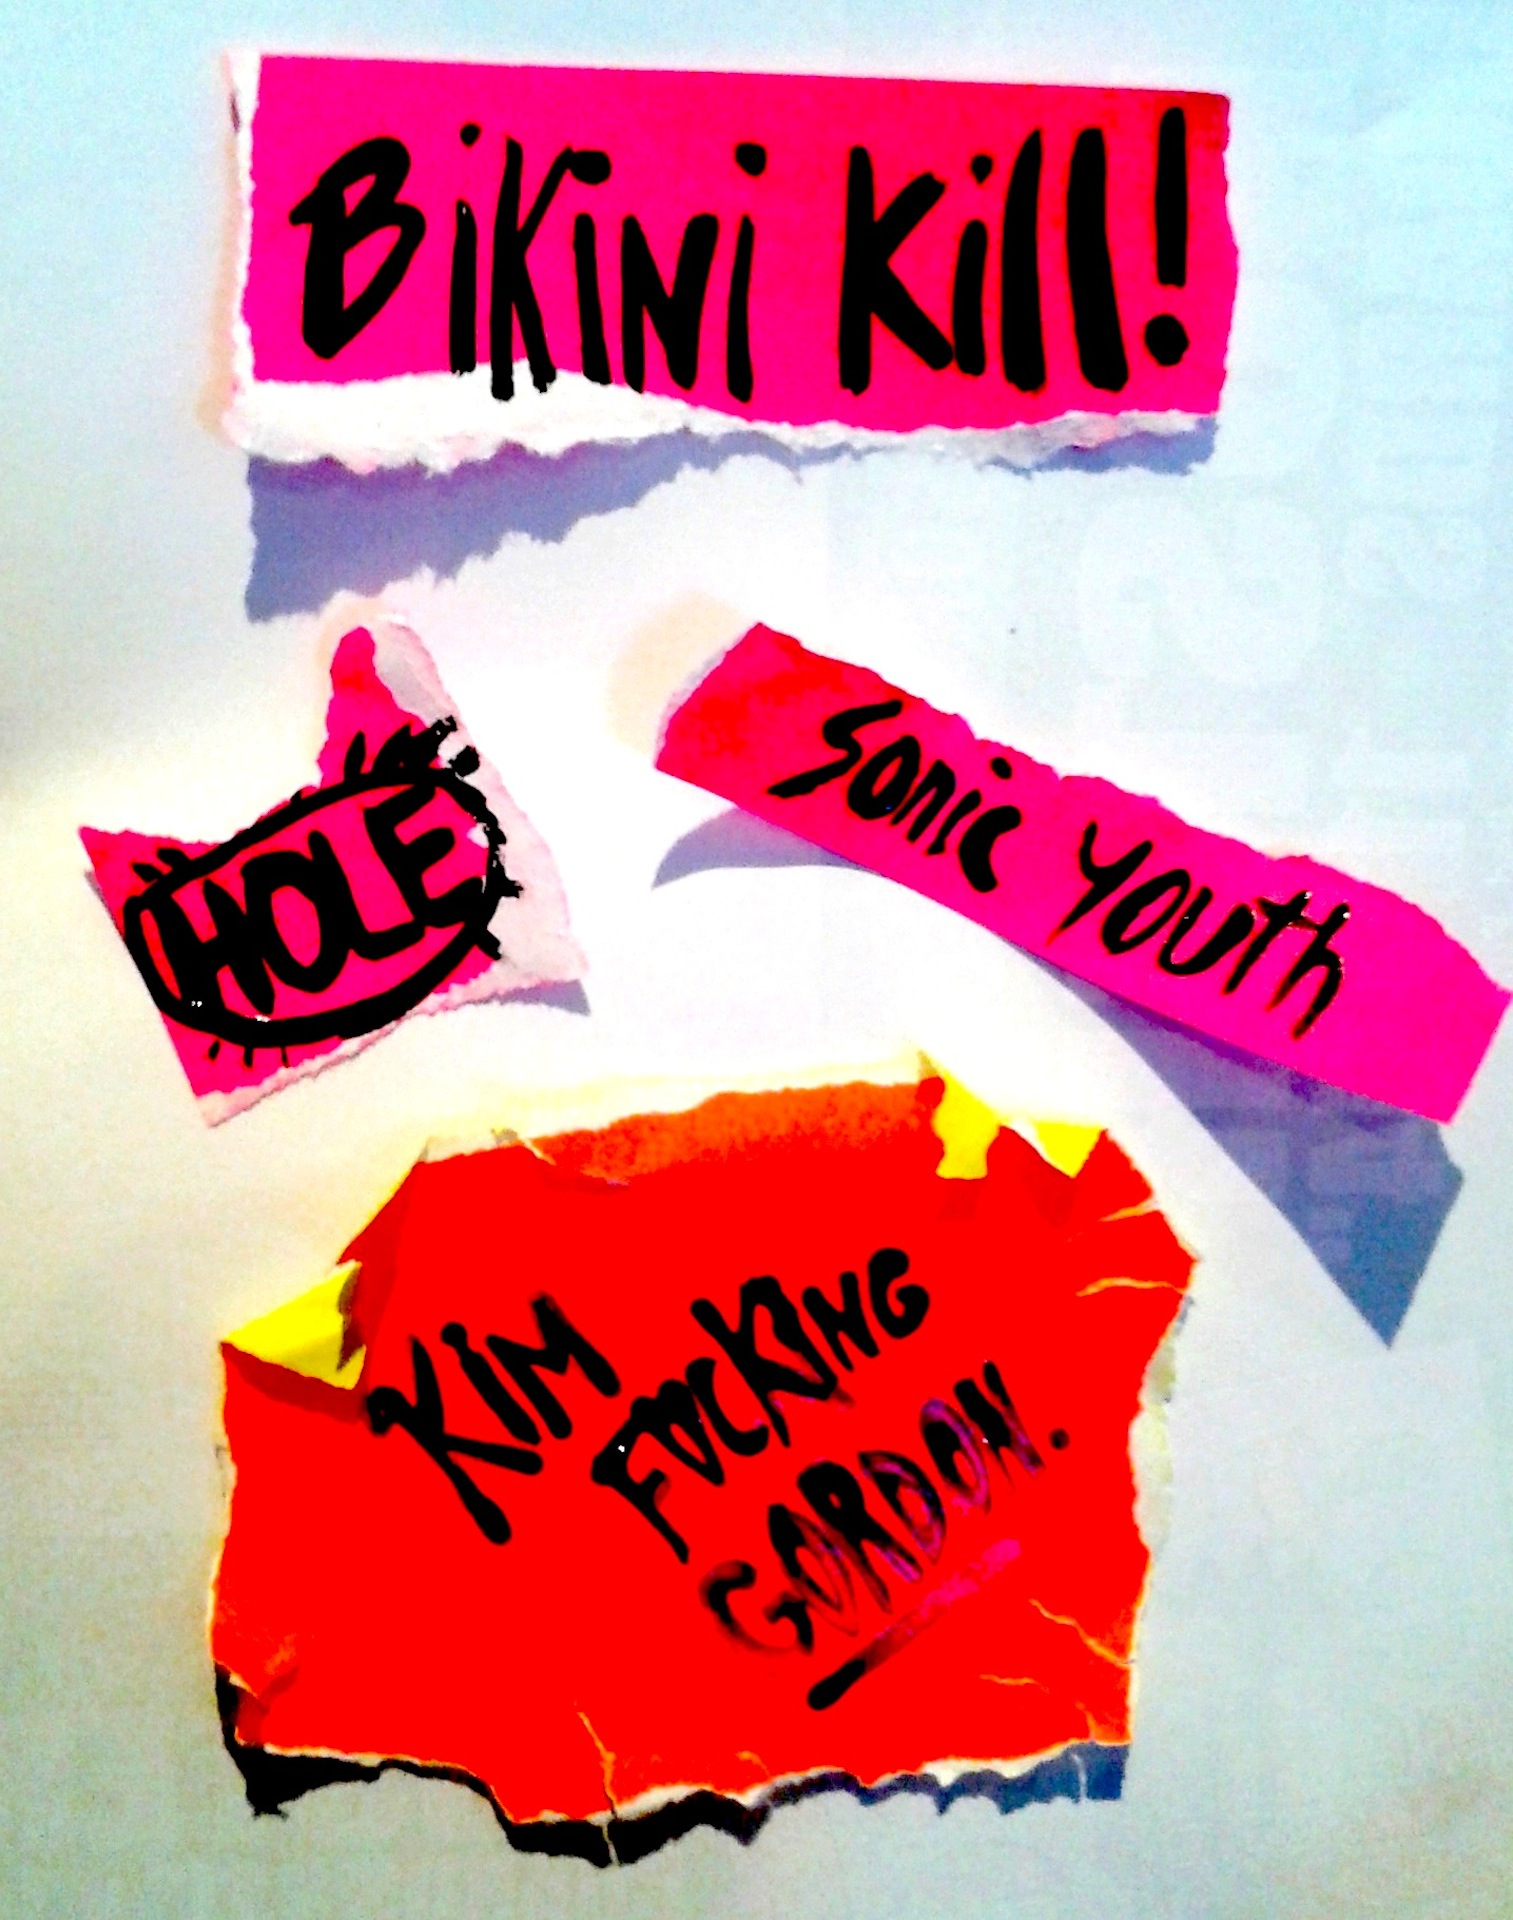 BiKiNi Kill!
HOLE
Sonic Youth
KiM
FUCKING
GORDON.